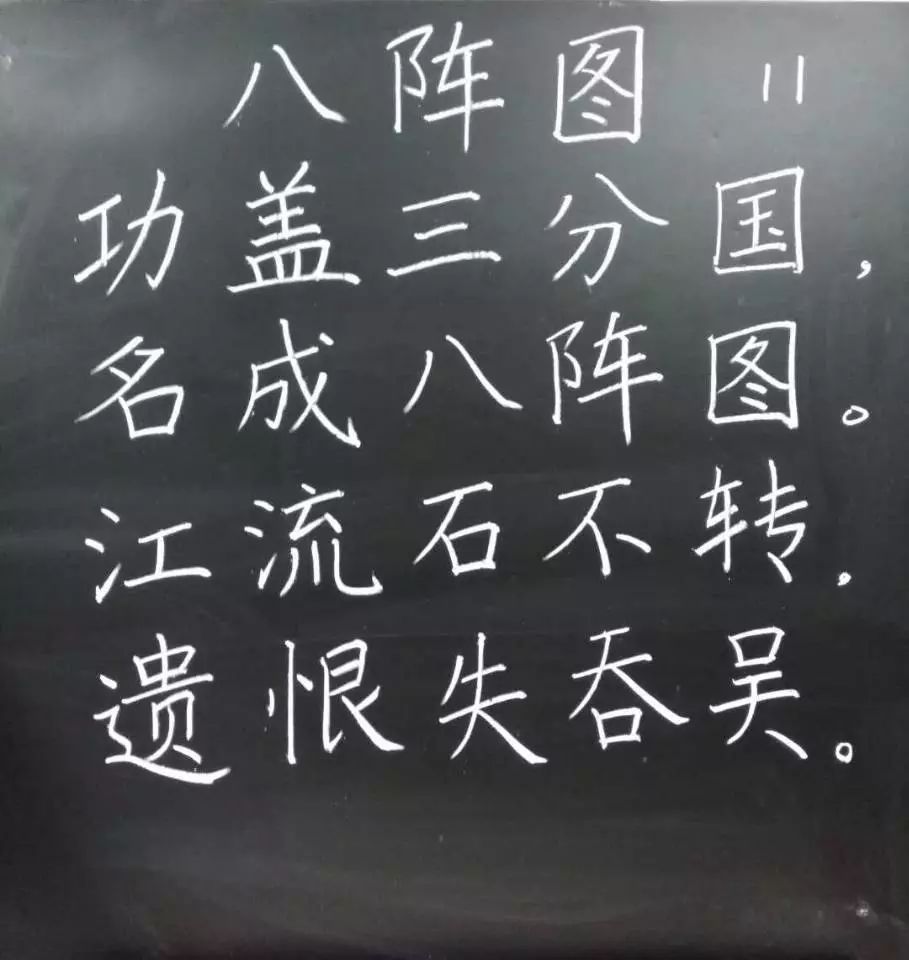 八阵图 11
功盖三分国，
名成八阵图。
江流石不转，
遗恨失吞吴。